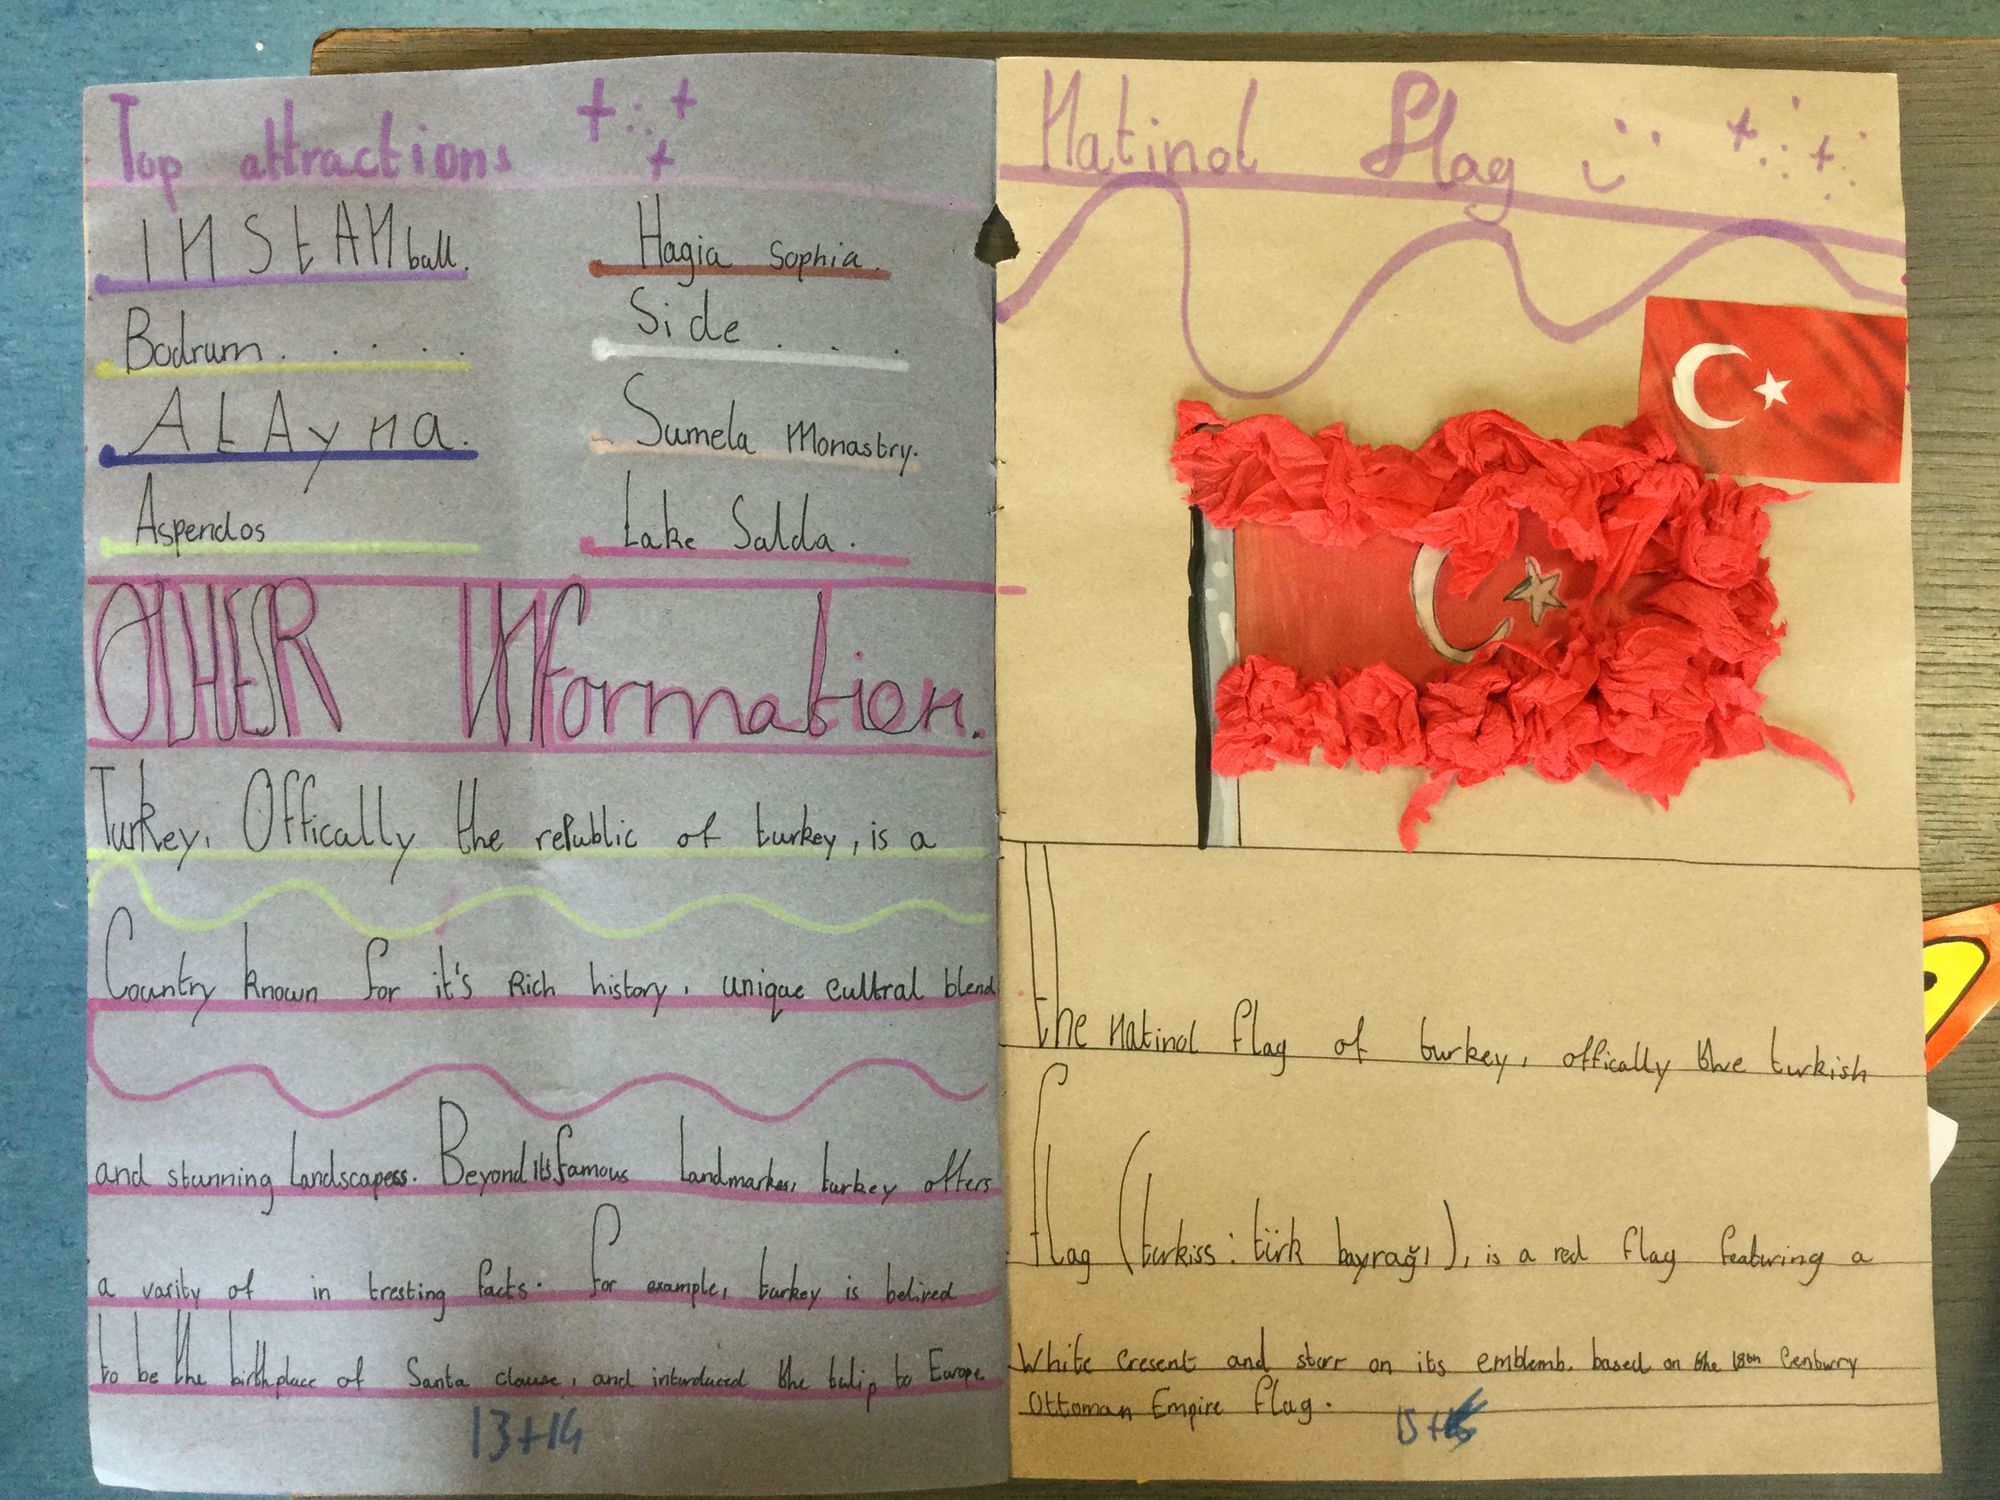 Top attractions
INStANball.
Hagia Sophia.
Bodrum.....
Side ...
AtAyna.
Sumela Monastry.
Aspendos
Lake Salda.
OTHER INformation.
Turkey, Offically the republic of turkey, is a
Country known for it's Rich history, unique cultral blend
and stunning landscapess. Beyond its famous landmarkes, turkey offers
a varity of in tresting facts. for example, turkey is belived
to be the birthplace of Santa clause, and intorduced the tulip to Europe
13+14
Natinol flag
the natinol flag of turkey, offically the turkish
flag (turkiss: türk bayrağı), is a red flag featuring a
White cresent and starr on its emblemb. based on the 18th Centurry
Ottoman Empire flag.